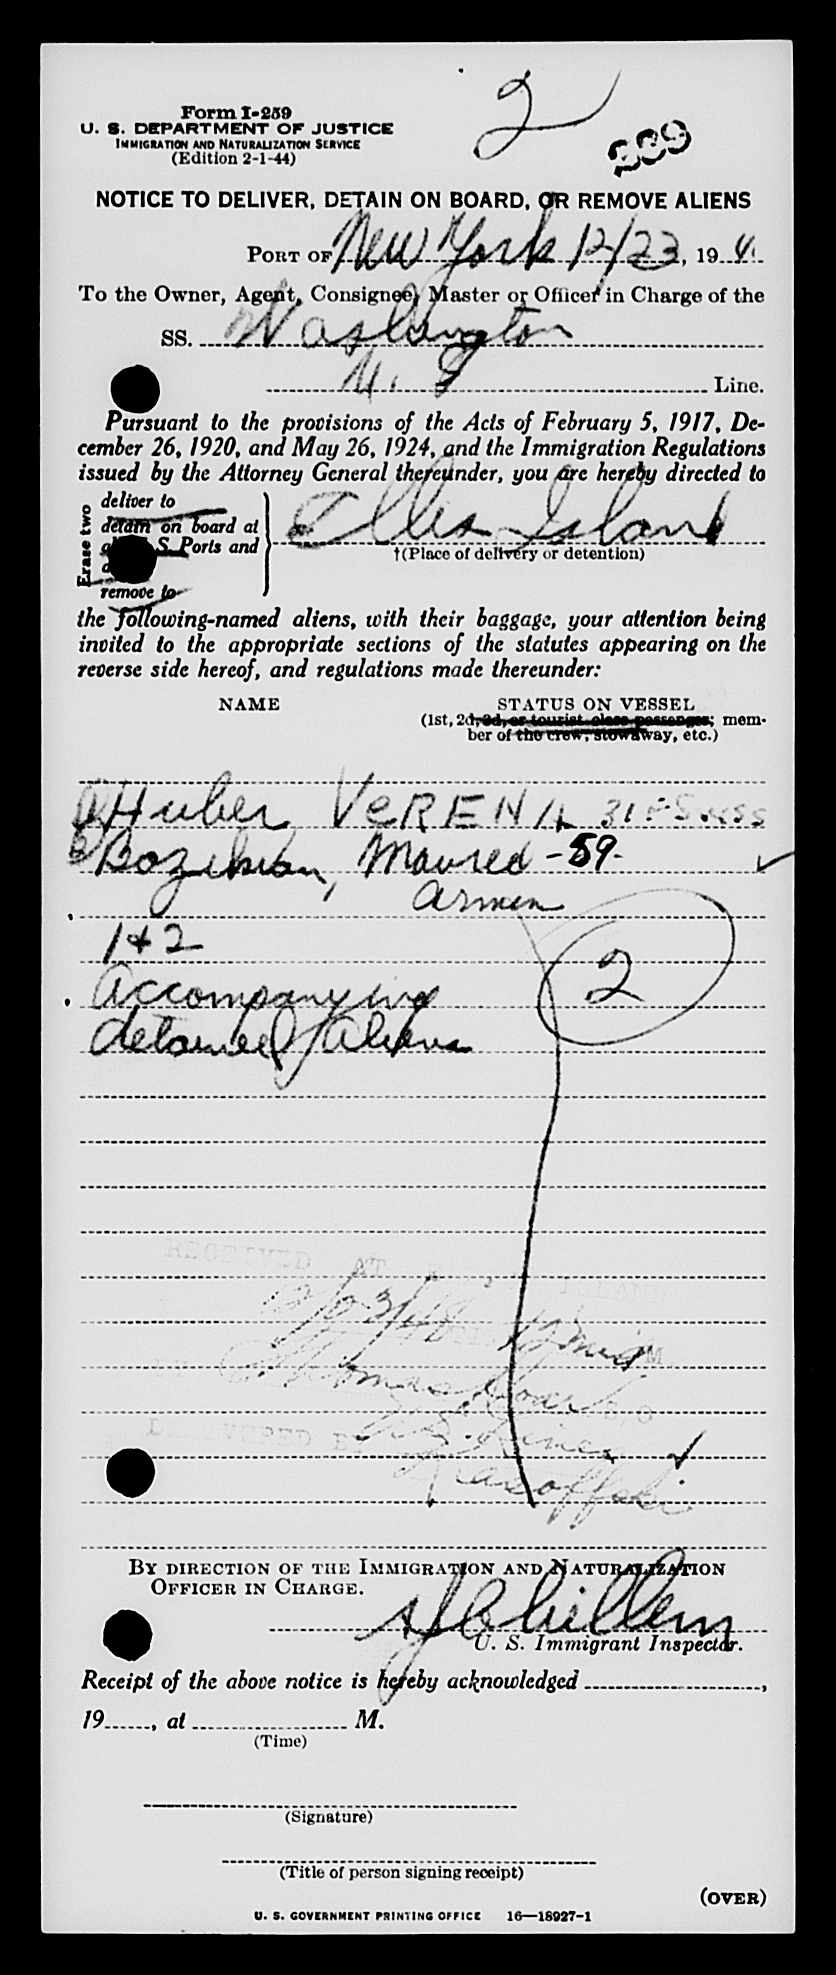 2
Form I-259
U. S. DEPARTMENT OF JUSTICE
IMMIGRATION AND NATURALIZATION SERVICE
(Edition 2-1-44)
339
NOTICE TO DELIVER, DETAIN ON BOARD, OR REMOVE ALIENS
PORT OF New York 12/23, 19
To the Owner, Agent, Consignee, Master or Officer in Charge of the
SS. Washington
U. S Line.
Pursuant to the provisions of the Acts of February 5, 1917, De-
cember 26, 1920, and May 26, 1924, and the Immigration Regulations
issued by the Attorney General thereunder, you are hereby directed to
Erase two
deliver to
detain on board at
S. Ports and
remove to
Ellis Island
†(Place of delivery or detention)
the following-named aliens, with their baggage, your attention being
invited to the appropriate sections of the statutes appearing on the
reverse side hereof, and regulations made thereunder:
NAME STATUS ON VESSEL
(1st, 2d, 3d, or tourist class passenger; mem-
ber of the crew, stowaway, etc.)
Huber VERENA 31 F S
Maured -59-
Armen
1+2
Accompanying
detained Aliens
2
RECEIVED AT
Thomas
BY DIRECTION OF THE IMMIGRATION AND NATURALIZATION
OFFICER IN CHARGE.
U. S. Immigrant Inspector.
Receipt of the above notice is hereby acknowledged ,
19 , at M.
(Time)
(Signature)
(Title of person signing receipt)
(OVER)
U. S. GOVERNMENT PRINTING OFFICE 16—18927-1